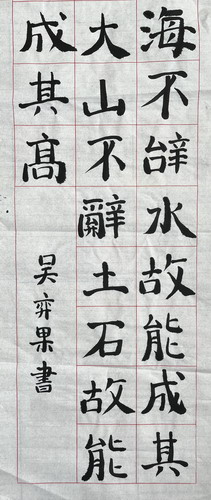 海不辤水故能成其
大山不辭土石故能
成其髙
吴弈果書